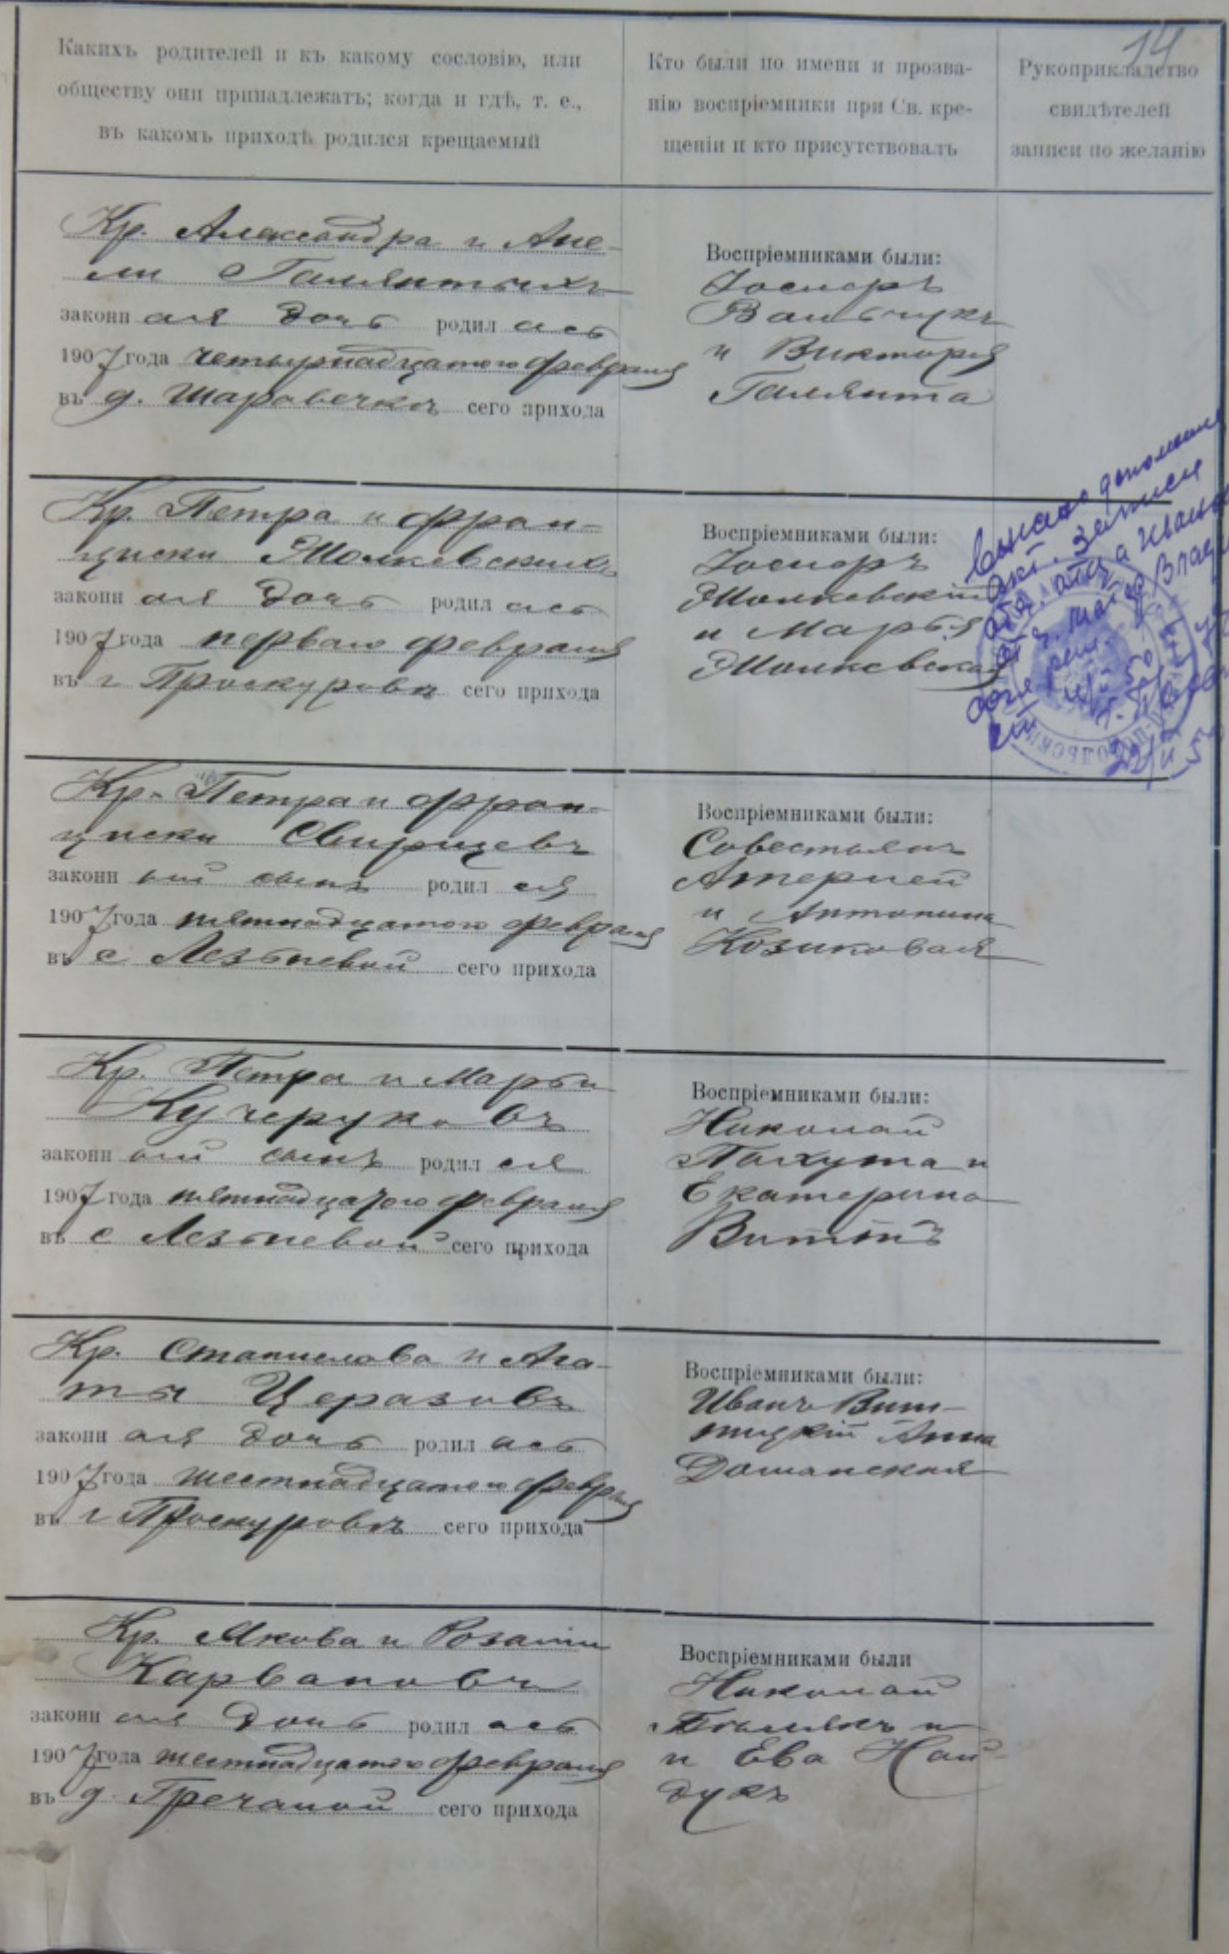 14
Какихъ родителей и къ какому сословію, или
обществу они принадлежатъ; когда и гдѣ, т. е.,
въ какомъ приходѣ родился крещаемый
Кто были по имени и прозва-
нію воспріемники при Св. кре-
щеніи и кто присутствовалъ
Рукоприкладство
свидѣтелей
записи по желанію
Кр. Александра и Ане-
ли Галянтыхъ
законн ая дочь родил ась
1907 года четырнадцатого февраля
въ д. Шаровечкѣ сего прихода
Воспріемниками были:
Іосифъ
Вальчукъ
и Викторія
Галянта
Кр. Петра и Фран-
циски Жолкевскихъ
законн ая дочь родил ась
1907 года перваго февраля
въ г Проскуровѣ сего прихода
Воспріемниками были:
Іосифъ
Жолкевскій
и Марья
Жолкевская
Кр. Петра и Фран-
циски Свирщевъ
законн ый сынъ родил ся
1907 года пятнадцатого февраля
въ с Лезьневой сего прихода
Воспріемниками были:
Совестьянъ
и Антонина
Козиковая
Кр. Петра и Марьи
Кучеруковъ
законн ый сынъ родил ся
1907 года пятнадцатого февраля
въ с Лезьневой сего прихода
Воспріемниками были:
Николай
Пахута и
Екатерина
Витокъ
Кр. Станислава и Ага-
ты Церазовъ
законн ая дочь родил ась
1907 года шестнадцатого февраля
въ г Проскуровѣ сего прихода
Воспріемниками были:
Иванъ Вит-
тицкій Анна
Доманская
Кр. Якова и Розалии
Карвановъ
законн ая дочь родил ась
1907 года шестнадцатого февраля
въ д. Гречаной сего прихода
Воспріемниками были
Николай
и Ева Най-
дукъ